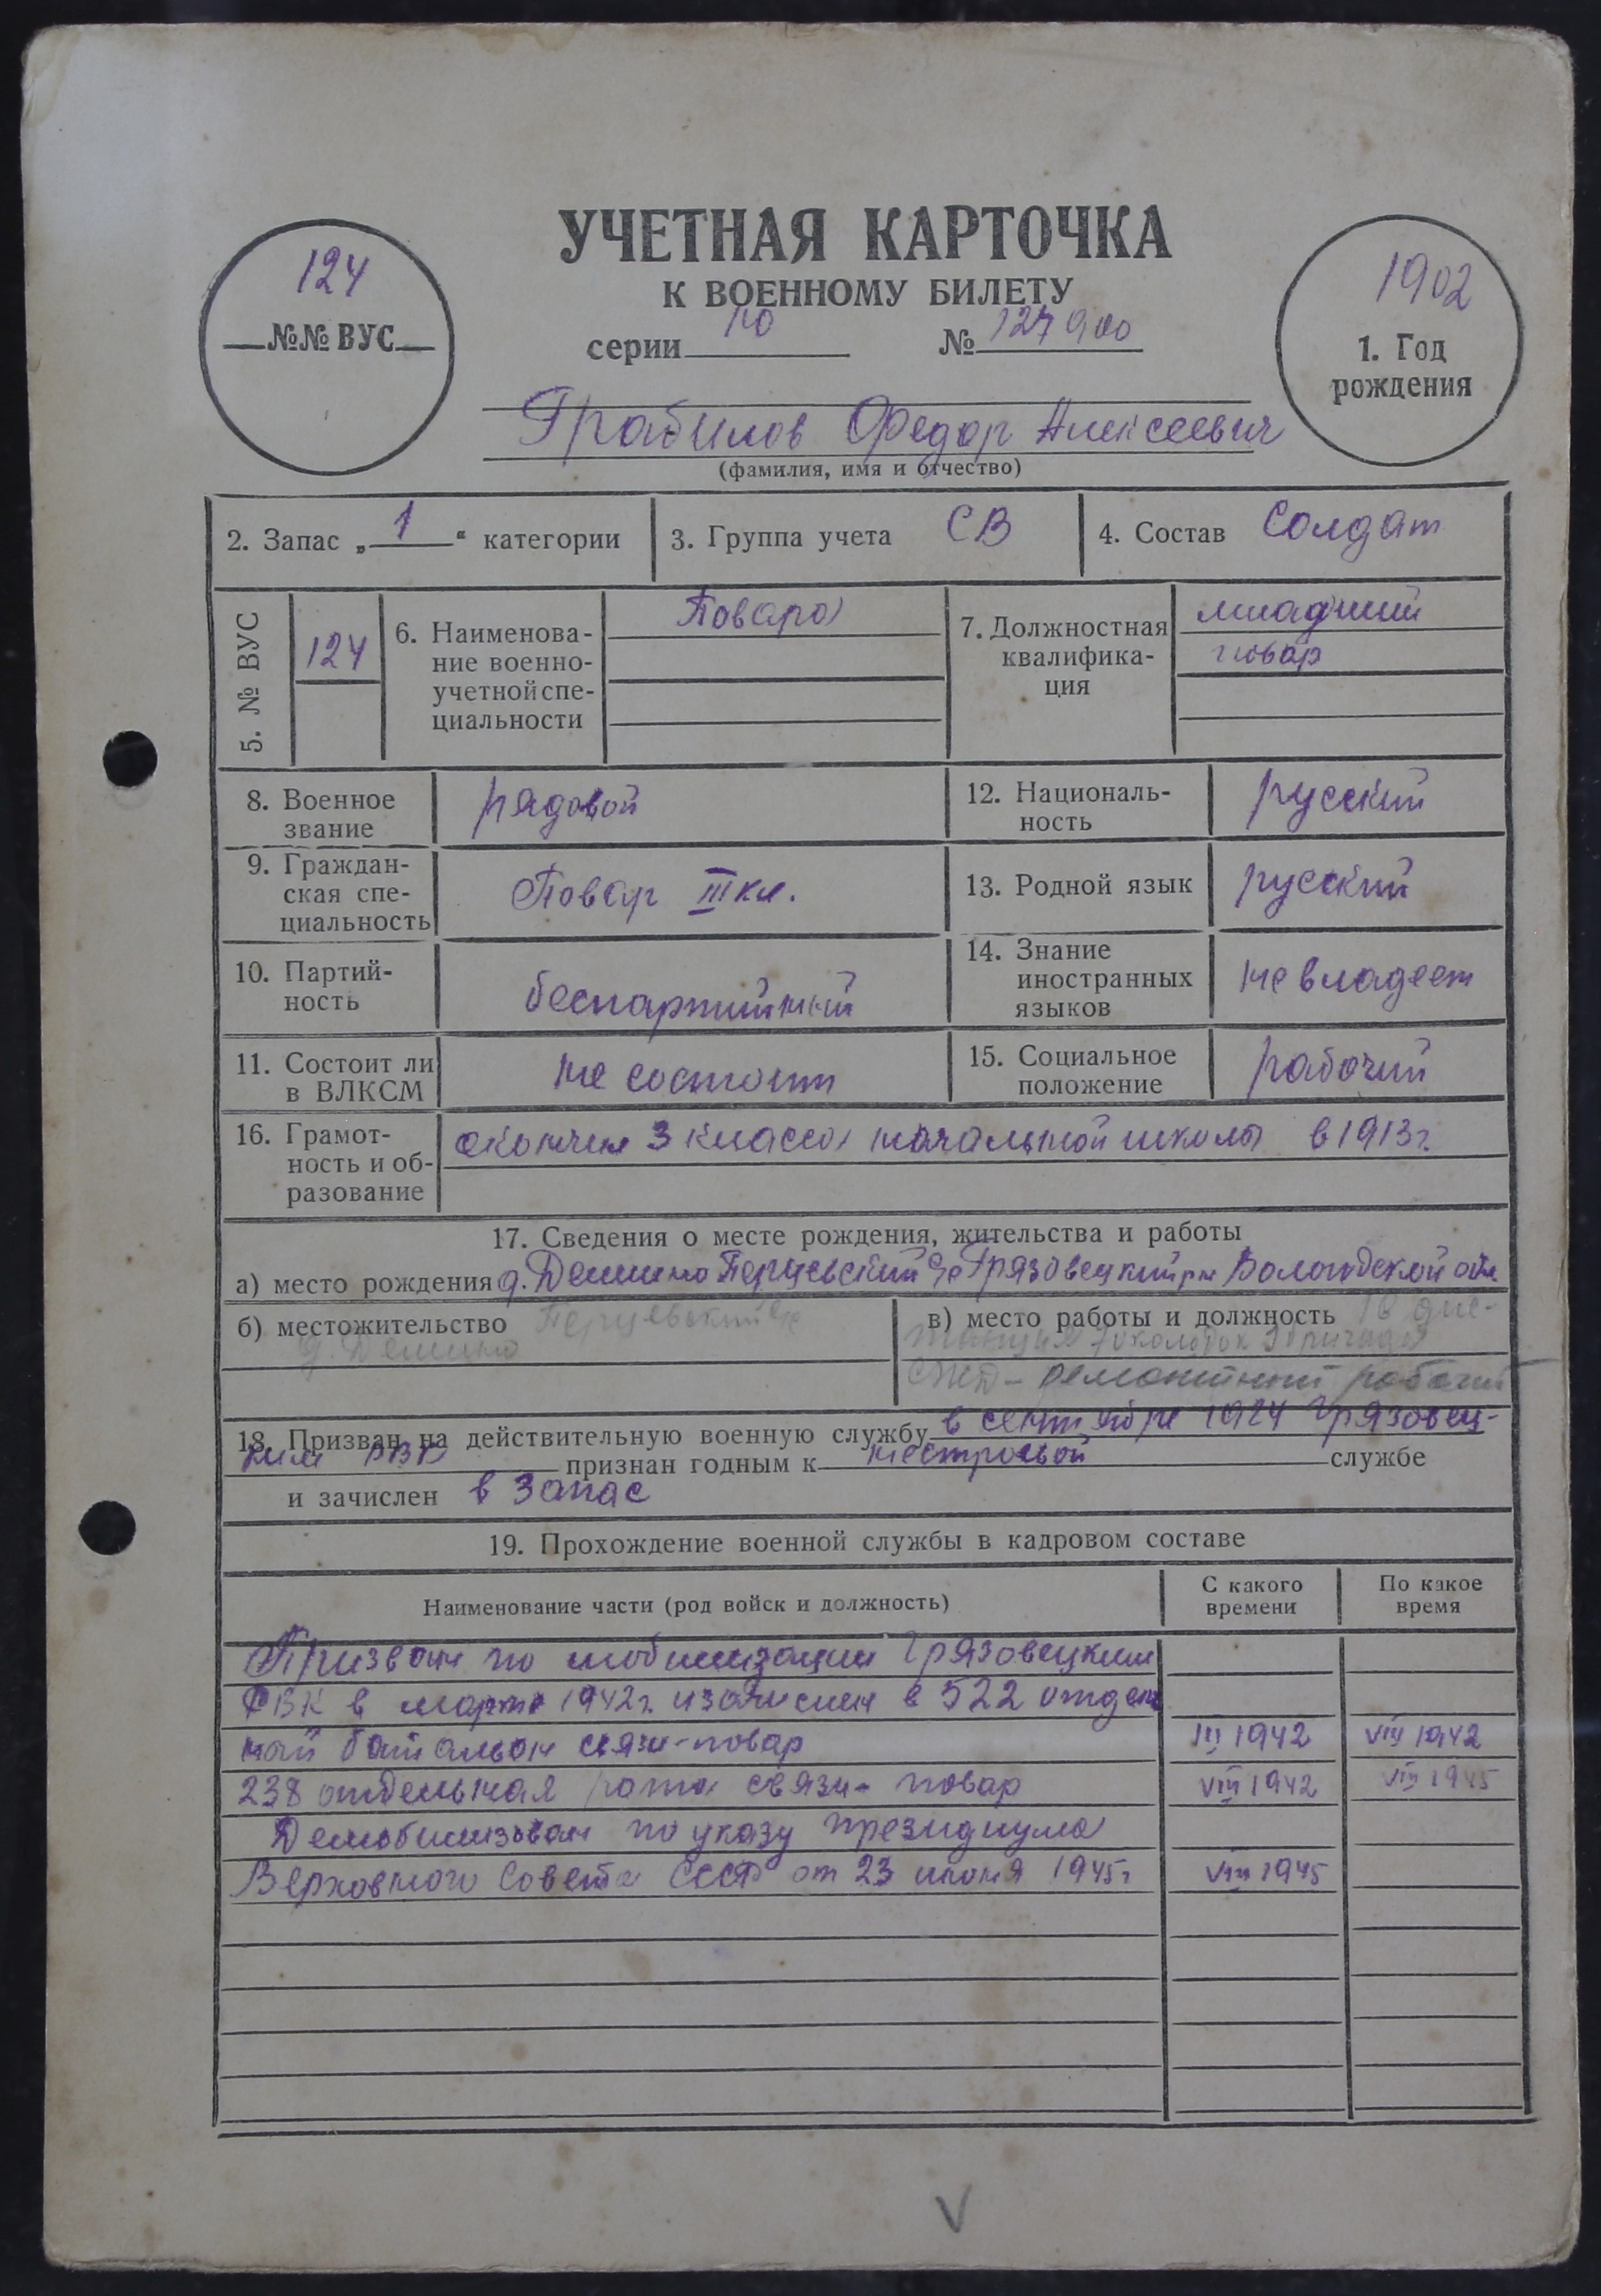 УЧЕТНАЯ КАРТОЧКА
К ВОЕННОМУ БИЛЕТУ
серии Ю № 127900
124
№№ ВУС
1902
1. Год
рождения
Грабилов Федор Алексеевич
(фамилия, имя и отчество)
2. Запас „ 1 “ категории
3. Группа учета СВ
4. Состав Солдат
5. № ВУС
124
6. Наименова-
ние военно-
учетной спе-
циальности
Повара
7. Должностная
квалифика-
ция
младший
повар
8. Военное
звание
рядовой
12. Националь-
ность
русский
9. Граждан-
ская спе-
циальность
Повар III кл.
13. Родной язык
русский
10. Партий-
ность
беспартийный
14. Знание
иностранных
языков
не владеет
11. Состоит ли
в ВЛКСМ
не состоит
15. Социальное
положение
рабочий
16. Грамот-
ность и об-
разование
окончил 3 класса начальной школы в 1913 г.
17. Сведения о месте рождения, жительства и работы
а) место рождения д. Демино Перцевский с/с Грязовецкий рн Вологодской обл
б) местожительство Перцевский с/с
д. Демино
в) место работы и должность
околодок
ремонтный рабочий
18. Призван на действительную военную службу в сентябре 1924 Грязовец-
ким РВК признан годным к нестроевой службе
и зачислен в запас
19. Прохождение военной службы в кадровом составе
Наименование части (род войск и должность)
С какого
времени
По какое
время
Призван по мобилизации Грязовецким
РВК в марте 1942 г. и зачислен в 522 отдель
ный батальон связи - повар III 1942 VIII 1942
238 отдельная рота связи - повар VIII 1942 VIII 1945
Демобилизован по указу президиума
Верховного Совета СССР от 23 июня 1945 г VIII 1945
V